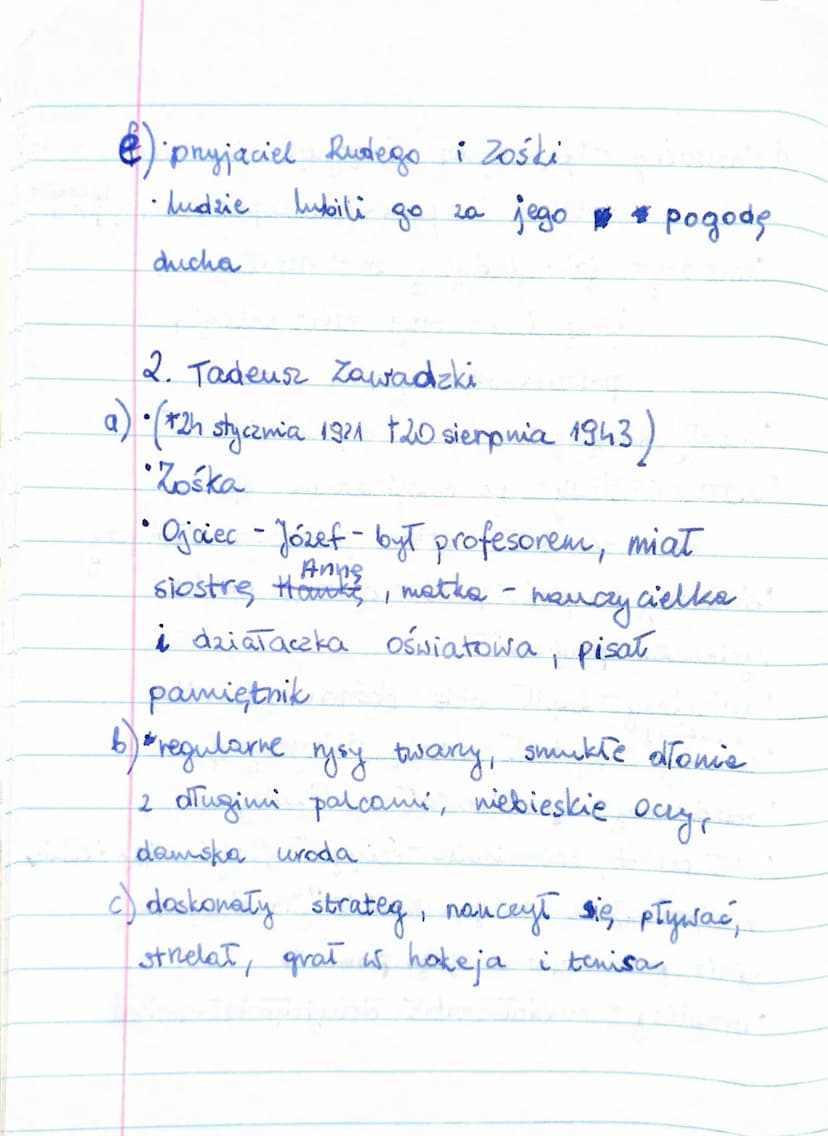 e) · przyjaciel Rudego i Zośki
· ludzie lubili go za jego pogodę
ducha
2. Tadeusz Zawadzki
a) · (*24 stycznia 1921 †20 sierpnia 1943)
· Zośka
· Ojciec - Józef - był profesorem, miał
Annę
siostrę Hankę, matka - nauczycielka
i działaczka oświatowa, pisał
pamiętnik
b) regularne rysy twarzy, smukłe dłonie
z długimi palcami, niebieskie oczy,
damska uroda
c) doskonały strateg, nauczył się pływać,
strzelał, grał w hokeja i tenisa